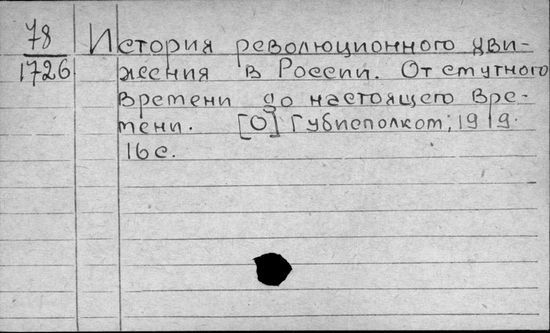 78
1726
История революционного дви-
жения в России. От смутного
времени до настоящего вре-
мени. [О] Губисполком, 1919.
16 с.